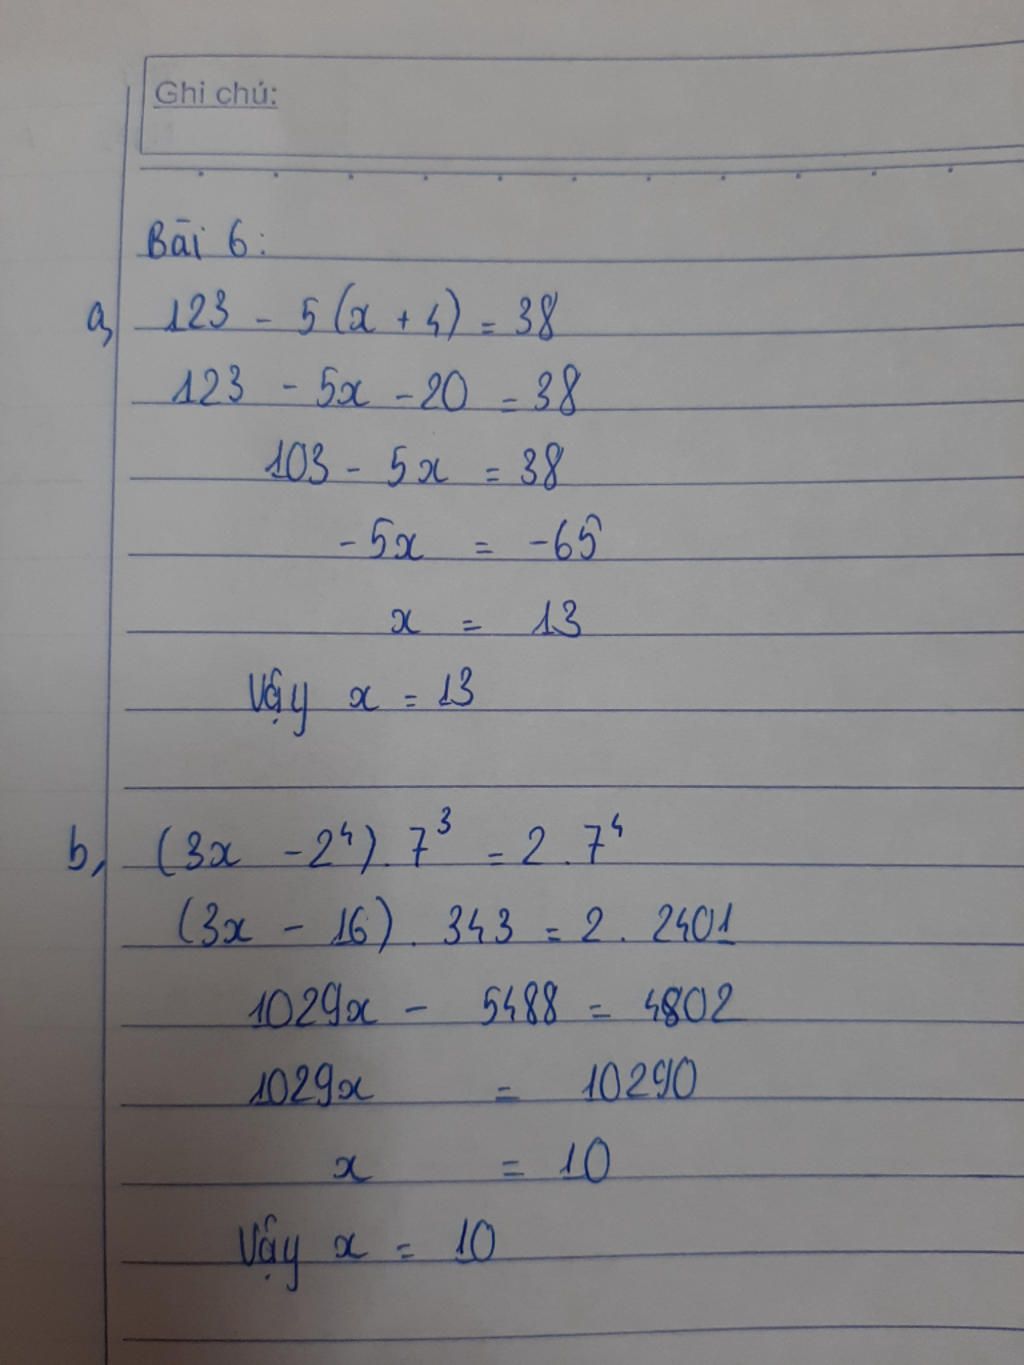 Ghi chú:
Bài 6:
a, 123 - 5(x + 4) = 38
123 - 5x - 20 = 38
103 - 5x = 38
-5x = -65
x = 13
Vậy x = 13
b, (3x - 2⁴). 7³ = 2. 7⁴
(3x - 16). 343 = 2. 2401
1029x - 5488 = 4802
1029x = 10290
x = 10
Vậy x = 10